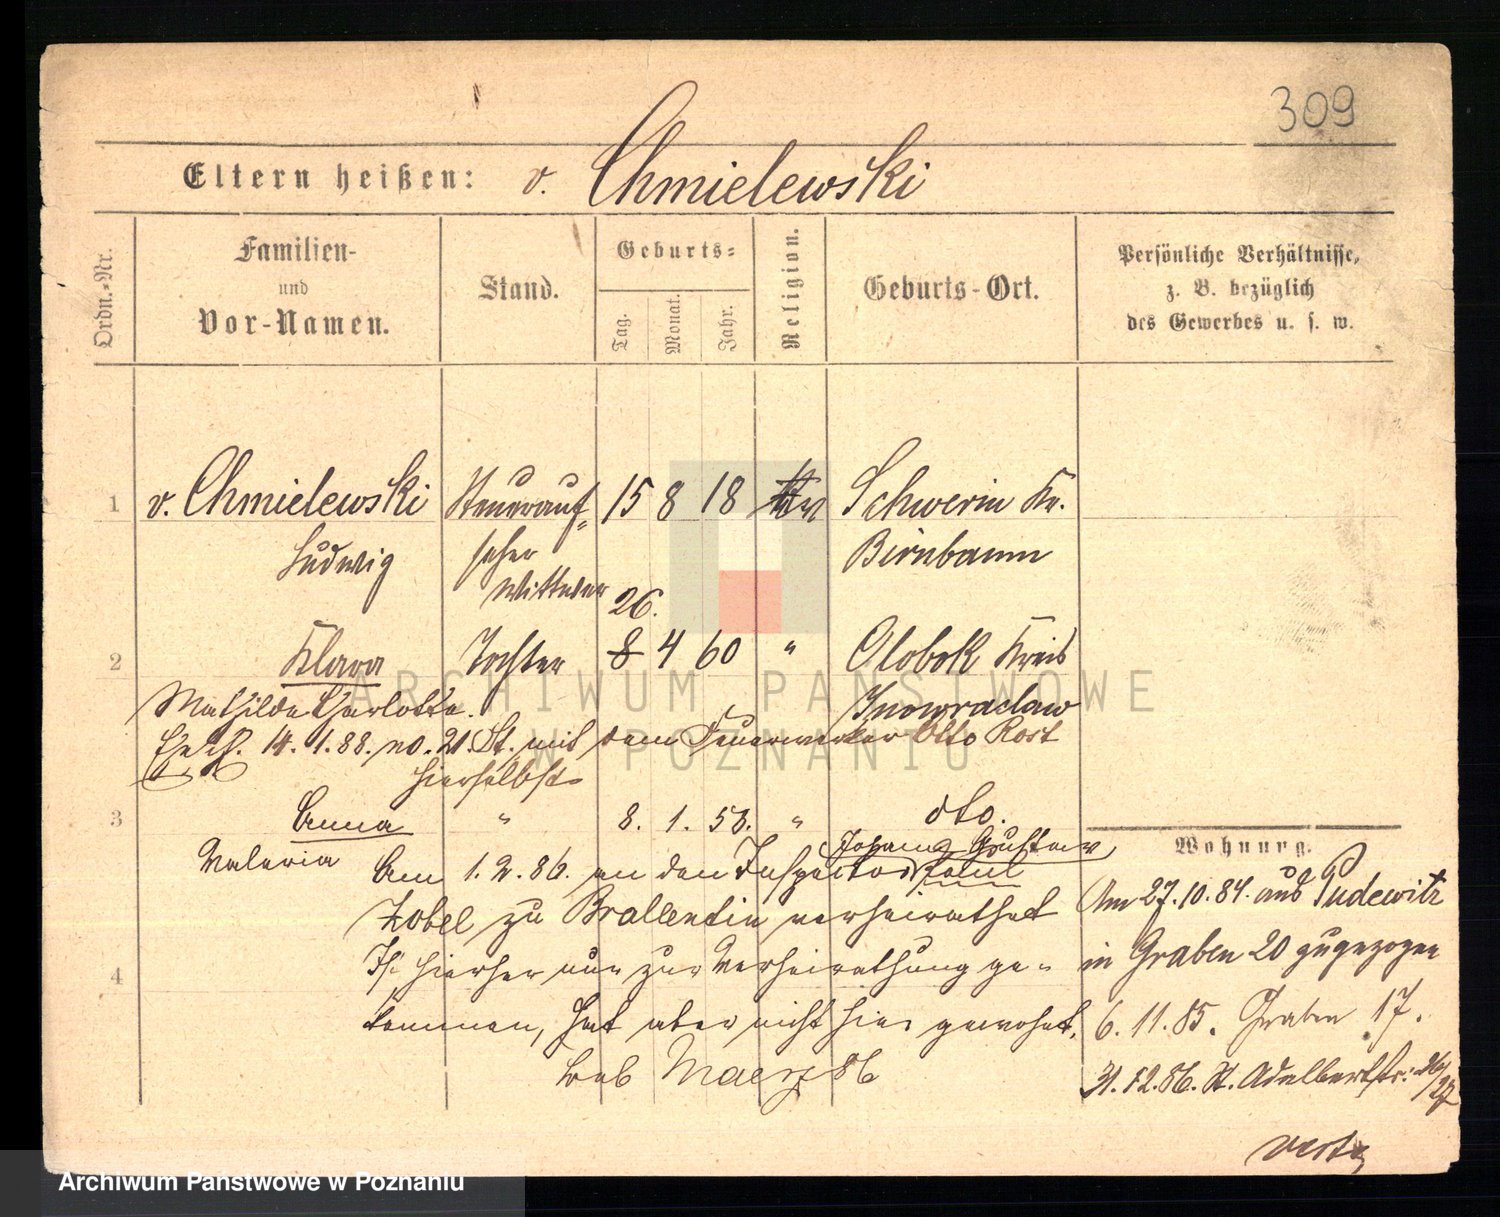 309
Eltern heißen: v. Chmielewski
Ordn.-Nr.
Familien-
und
Vor-Namen.
Stand.
Geburts-
Tag.
Monat.
Jahr.
Religion.
Geburts-Ort.
Persönliche Verhältnisse,
z. B. bezüglich
des Gewerbes u. s. w.
1 v. Chmielewski Steuerauf- 15 8 18 ev Schwerin Kr.
Ludwig seher Birnbaum
Wittwer
26.
2 Klara Tochter 8 4 60 " Olobok Kreis
Mathilde Charlotte. Inowraclaw
14. 1. 88. no. 21. St. mit dem Feuerwerker Otto Rost
hierselbst
3 Anna " 8. 1. 58. " dto.
Valeria
Johann Gustav
Am 1. 2. 86. an den Inspector
Zobel zu Brallentin verheirathet
Ist hierher nur zur Verheirathung ge-
4
kommen, hat aber nicht hier gewohnt.
Maerz 86
Wohnung.
Am 27. 10. 84. aus Pudewitz
in Graben 20 zugezogen
6. 11. 85. Graben 17.
31. 12. 86. St. Adalbertstr: 26/27
verte
ARCHIWUM PAŃSTWOWE
W POZNANIU
Archiwum Państwowe w Poznaniu